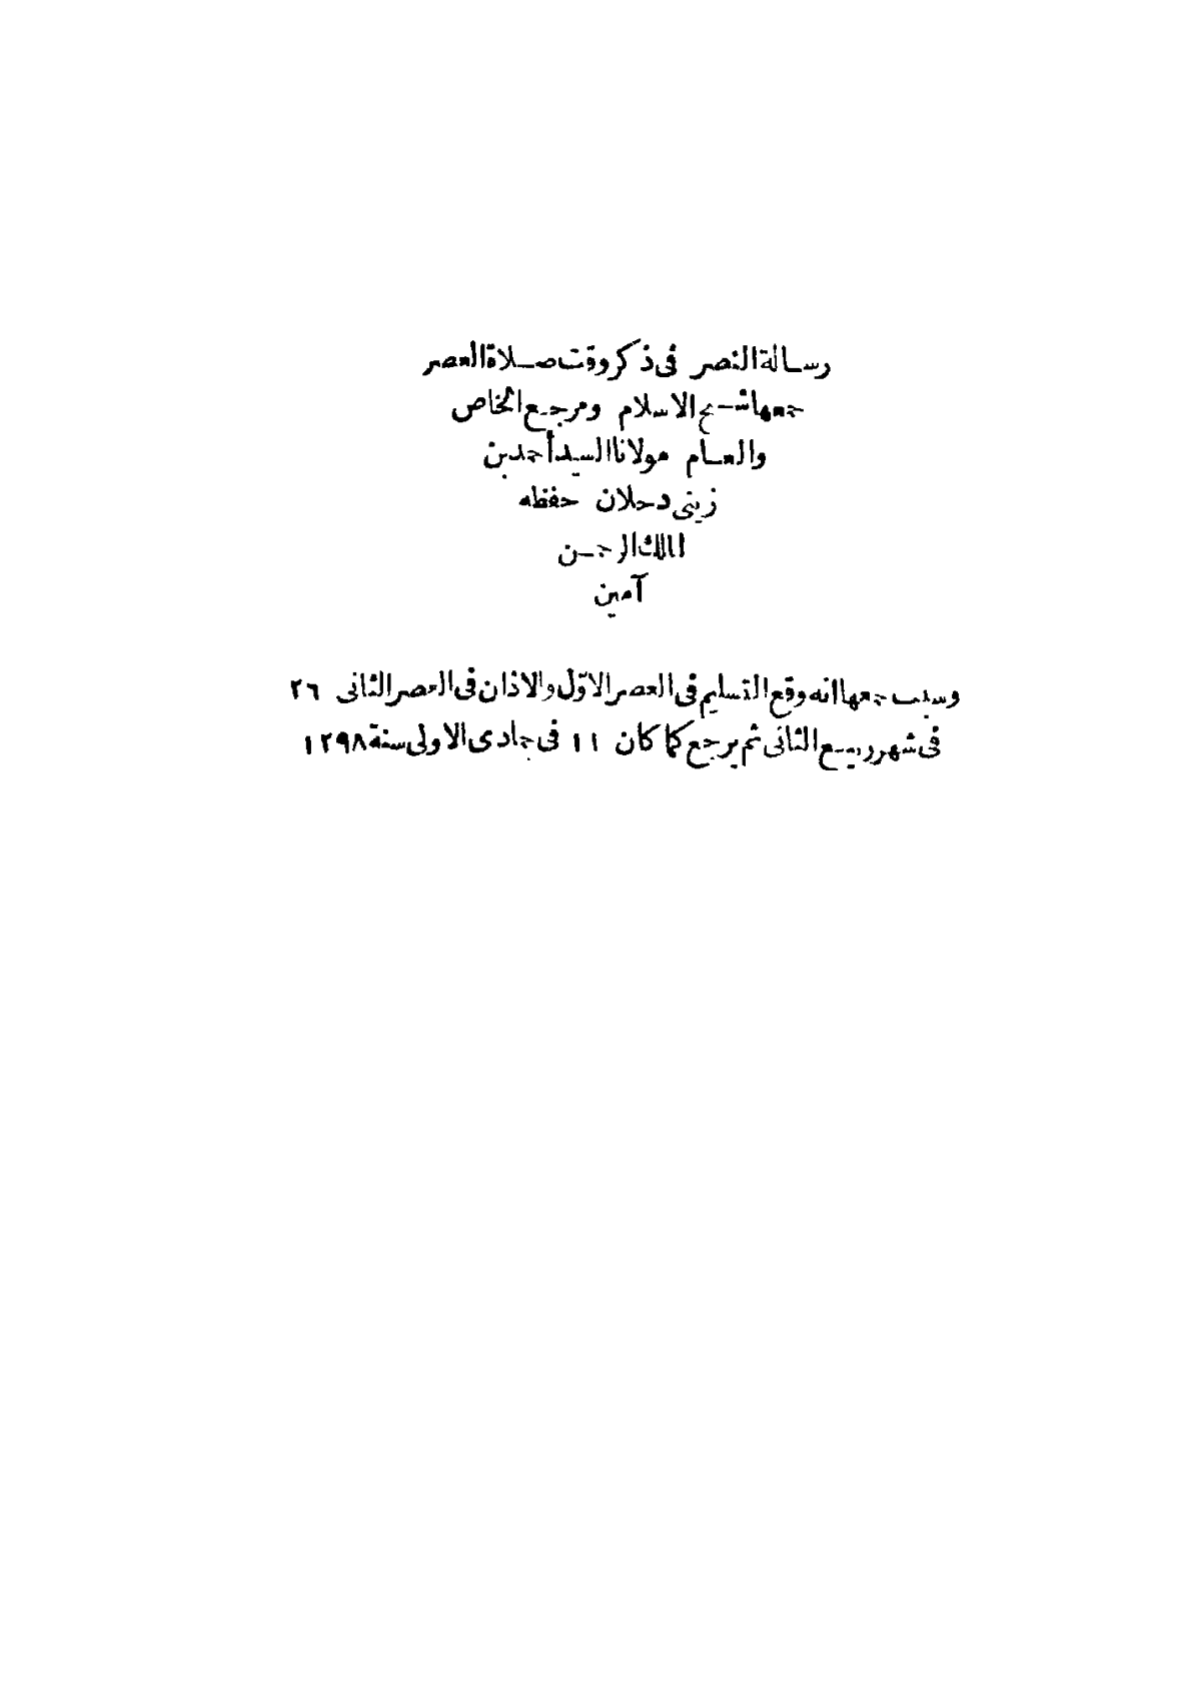 رسالة النصر فى ذكر وقت صلاة العصر
جمعها شيخ الاسلام ومرجع الخاص
والعام مولانا السيد أحمد بن
زينى دحلان حفظه
المالك الرحمن
آمين
وسبب جمعها انه وقع التسليم فى العصر الاوّل والاذان فى العصر الثانى ٢٦
فى شهر ربيع الثانى ثم يرجع كما كان ١١ فى جمادى الاولى سنة ١٢٩٨